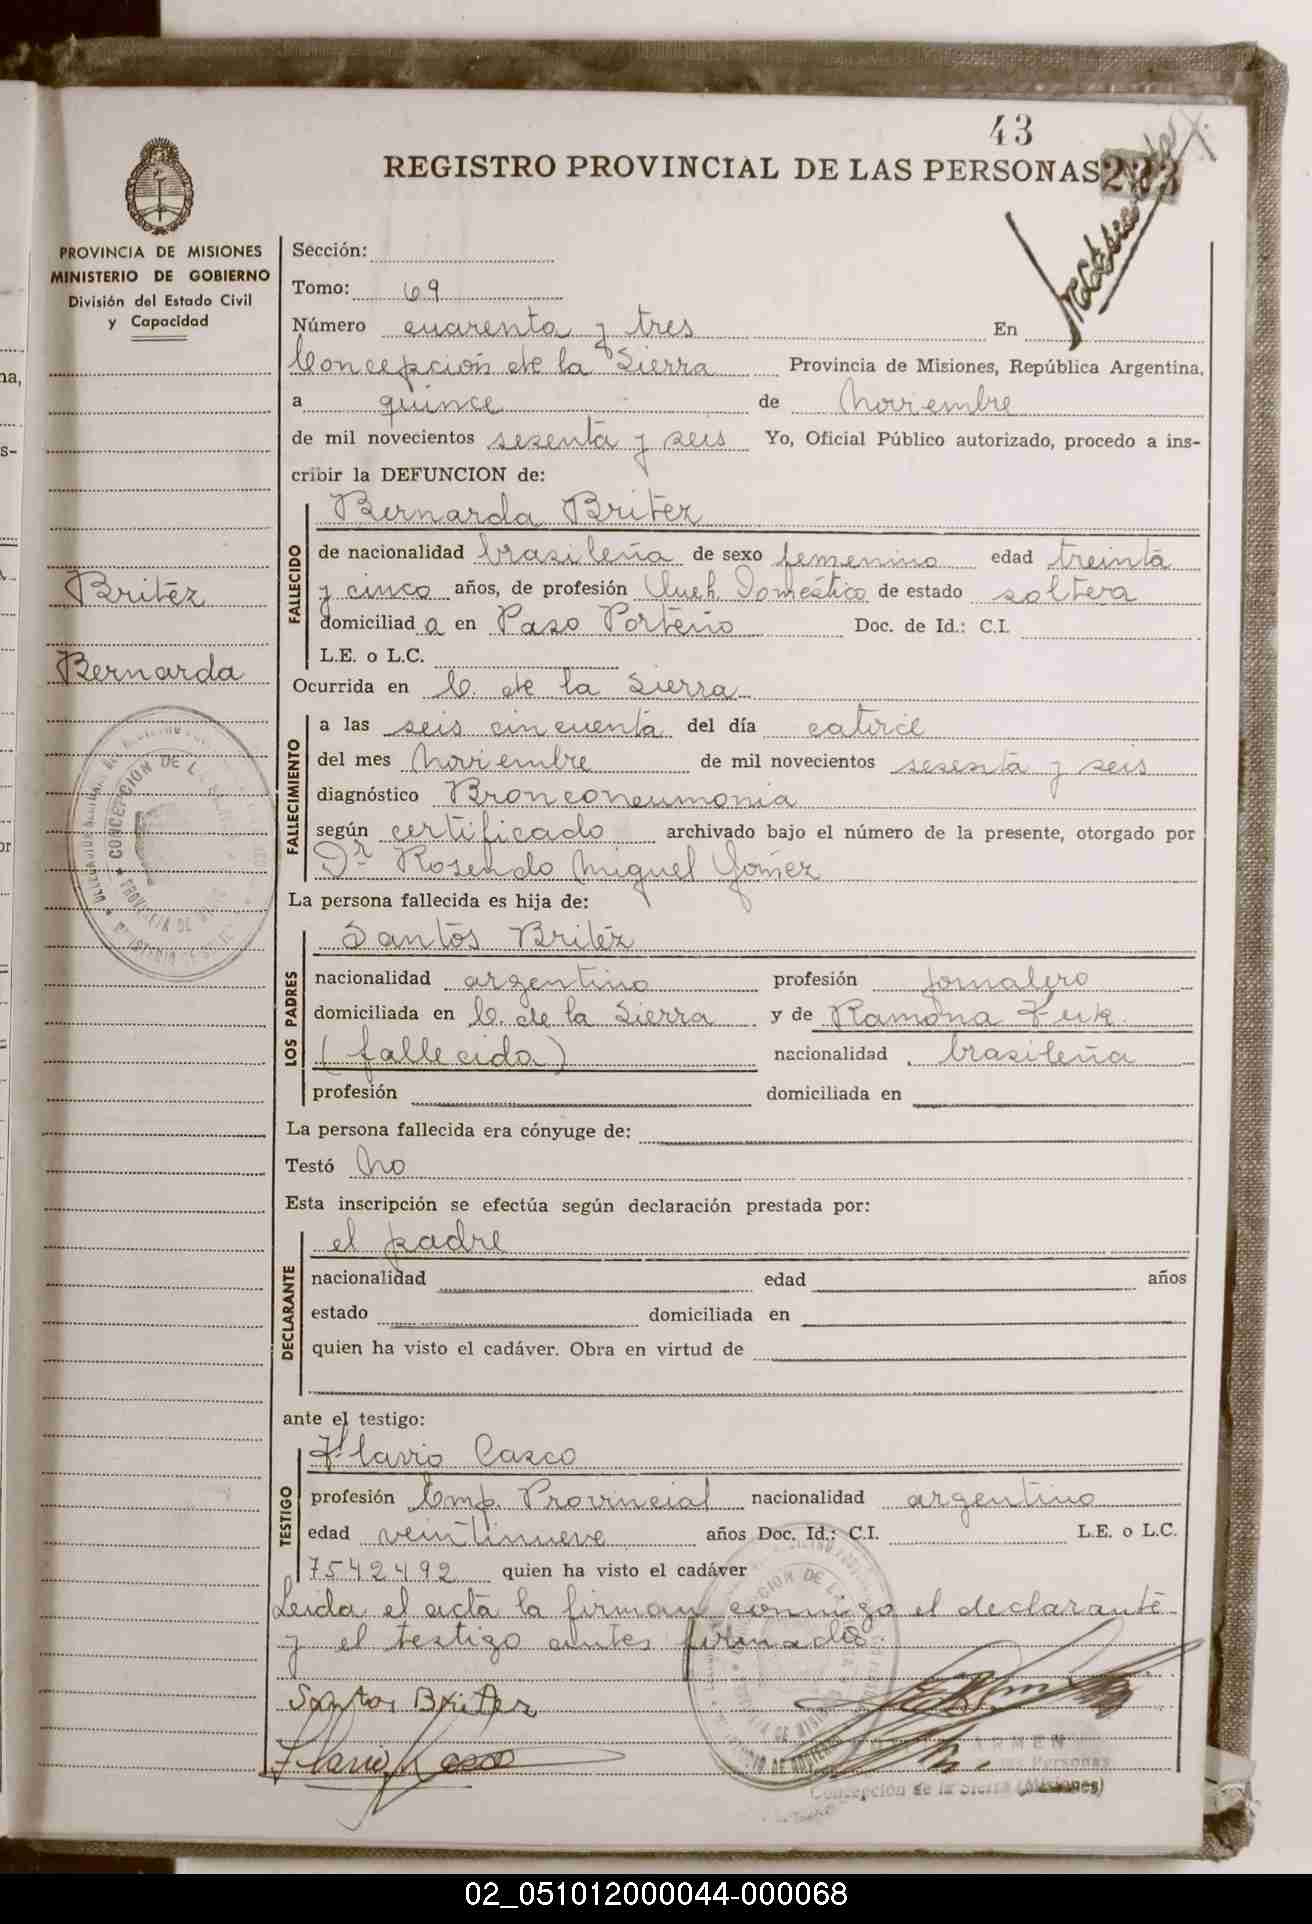 43
REGISTRO PROVINCIAL DE LAS PERSONAS
PROVINCIA DE MISIONES
MINISTERIO DE GOBIERNO
División del Estado Civil
y Capacidad
Britéz
Bernarda
Sección:
Tomo: 69
Número cuarenta y tres En
Concepción de la Sierra Provincia de Misiones, República Argentina,
a quince de Noviembre
de mil novecientos sesenta y seis Yo, Oficial Público autorizado, procedo a ins-
cribir la DEFUNCION de:
FALLECIDO
Bernarda Britéz
de nacionalidad brasileña de sexo femenino edad treinta
y cinco años, de profesión Queh. Doméstico de estado soltera
domiciliad a en Paso Porteño Doc. de Id.: C.I.
L.E. o L.C.
Ocurrida en C. de la Sierra
FALLECIMIENTO
a las seis cincuenta del día catorce
del mes Noviembre de mil novecientos sesenta y seis
diagnóstico Bronconeumonia
según certificado archivado bajo el número de la presente, otorgado por
Dr Rosendo Miguel Gómez
La persona fallecida es hija de:
LOS PADRES
Santos Britéz
nacionalidad argentino profesión Jornalero
domiciliada en C. de la Sierra y de Ramona
(fallecida) nacionalidad brasileña
profesión domiciliada en
La persona fallecida era cónyuge de:
Testó No
Esta inscripción se efectúa según declaración prestada por:
DECLARANTE
el padre
nacionalidad edad años
estado domiciliada en
quien ha visto el cadáver. Obra en virtud de
ante el testigo:
TESTIGO
Flavio Casco
profesión Emp. Provincial nacionalidad argentino
edad veintinueve años Doc. Id.: C.I. L.E. o L.C.
7542492 quien ha visto el cadáver
Leida el acta la firman conmigo el declarante
y el testigo antes firmado.
Santos Britez
Flavio Casco
Concepción de la Sierra (Misiones)
02_051012000044-000068